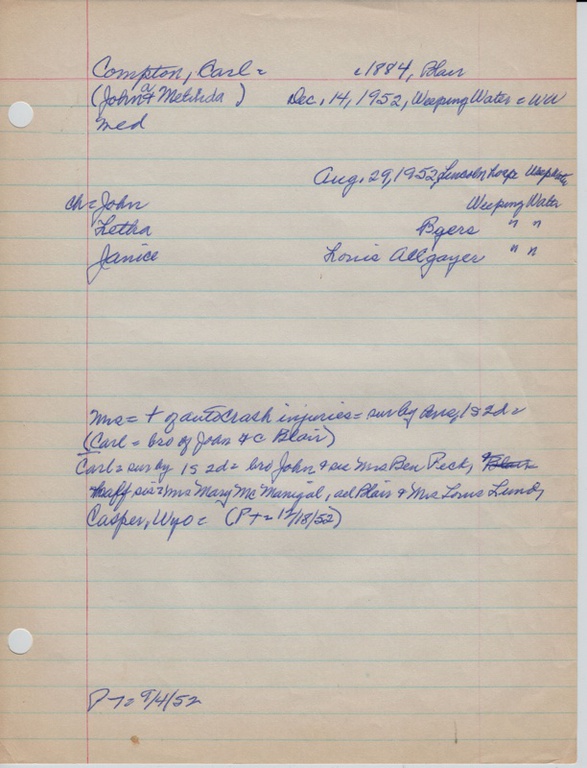 Compton, Carl = c1884, Blair
(John a & Melinda) Dec. 14, 1952, Weeping Water = WW
med
Aug. 29, 1952, Lincoln hosp
ch = John Weeping Water
Letha Byers " "
Janice Louis Allgayer " "
Mrs = + of auto crash injuries = sur by 1s 2d =
(Carl = bro of John & c Blair)
Carl = sur by 1s 2d = bro John & sis Mrs Ben Peck, & Blair
haff sis = Mrs Mary Mc Manigal, ad Blair & Mrs Louis Lund,
Casper, Wyo = (PT = 12/18/52)
PT = 9/4/52